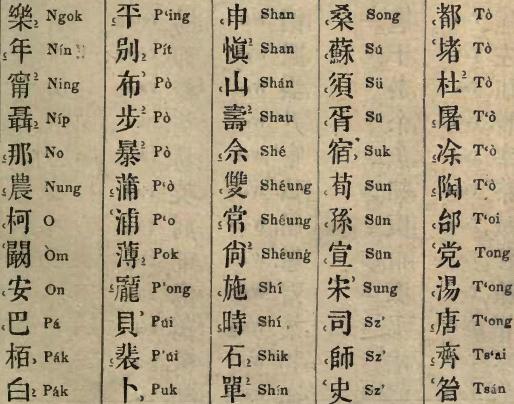 樂₂ Ngok
年 Nín
甯² Ning
聶₂ Níp
那 No
農 Nung
柯 O
闞² Òm
安 On
巴 Pá
栢 Pák
白₂ Pák
平 P‘ing
別₂ Pít
布² Pò
步² Pò
暴² Pò
蒲 P‘ò
浦 P‘o
薄₂ Pok
龐 P‘ong
貝’ Púi
裴 P‘úi
卜 Puk
申 Shan
愼² Shan
山 Shán
壽² Shau
佘 Shé
雙 Shéung
常 Shéung
尙² Shéung
施 Shí
時 Shí
石₂ Shik
單² Shín
桑 Song
蘇 Sú
須 Sü
胥 Sü
宿 Suk
荀 Sun
孫 Sün
宣 Sün
宋’ Sung
司 Sz’
師 Sz’
史 Sz’
都 Tò
堵 Tò
杜² Tò
屠 T‘ò
涂 T‘ò
陶 T‘ò
邰 T‘oi
党 Tong
湯 T‘ong
唐 T‘ong
齊 Ts‘ai
昝 Tsán